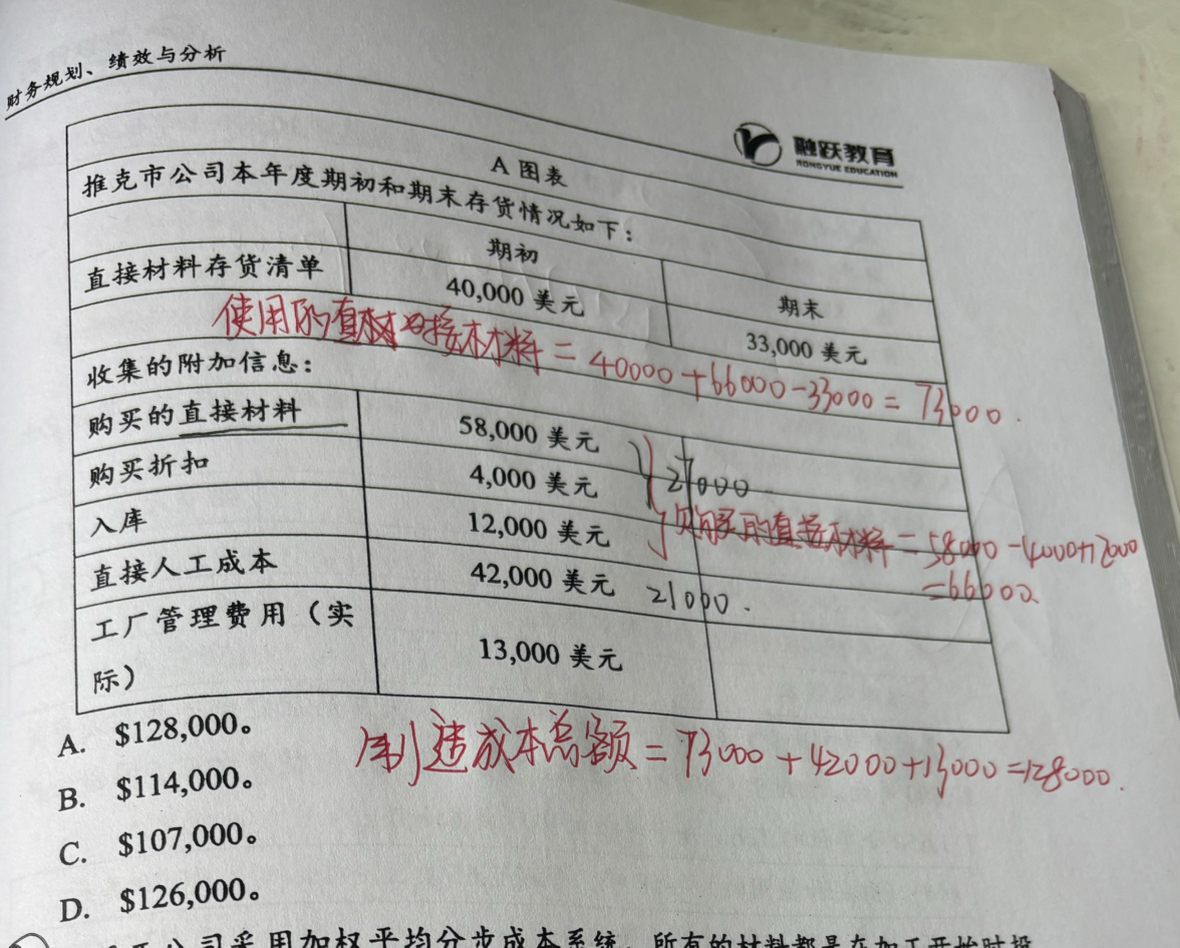 财务规划、绩效与分析
融跃教育
RONGYUE EDUCATION
A 图表
推克市公司本年度期初和期末存货情况如下:
期初 期末
直接材料存货清单 40,000 美元 33,000 美元
使用的直接材料 = 40000 + 66000 - 33000 = 73000.
收集的附加信息:
购买的直接材料 58,000 美元
27000
购买折扣 4,000 美元
购买的直接材料 = 58000 - 4000 + 12000
= 66000
入库 12,000 美元
直接人工成本 42,000 美元 21000.
工厂管理费用(实
际) 13,000 美元
制造成本总额 = 73000 + 42000 + 13000 = 128000.
A. $128,000。
B. $114,000。
C. $107,000。
D. $126,000。
公司采用加权平均分步成本系统,所有的材料都是在加工开始时投